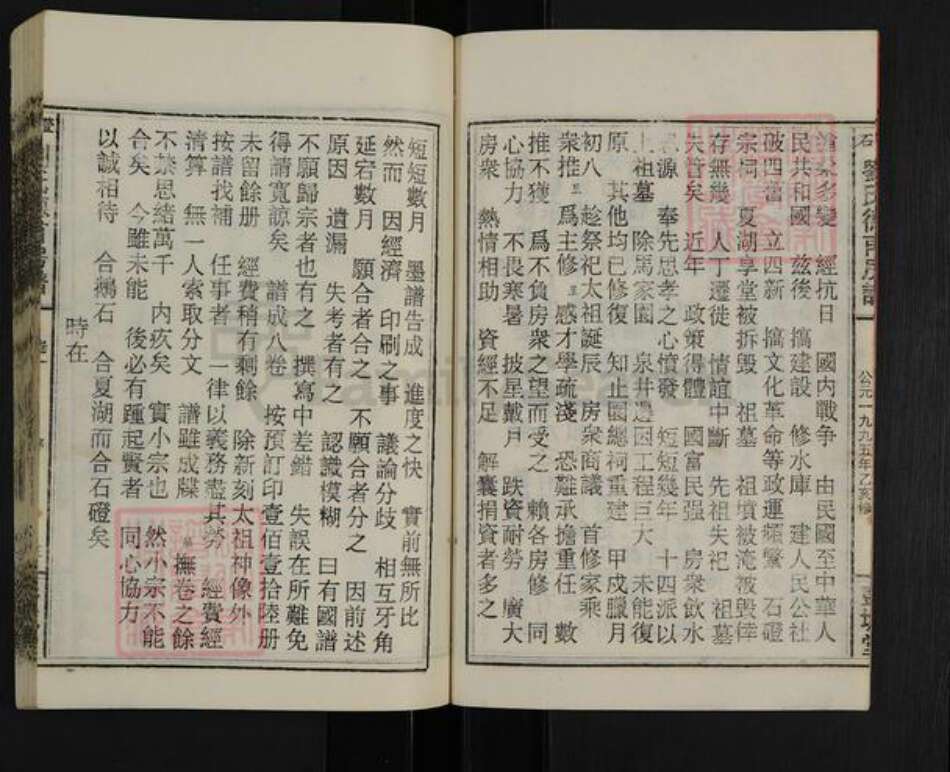 劉氏
公元一九九五年乙亥修
滄桑多變　經抗日　國內戰争　由民國至中華人
民共和國　兹後　搞建設　修水庫　建人民公社
破四舊　立四新　搞文化革命等政運頻繁　石磴
宗祠　夏湖享堂被拆毀　祖墓　祖墳被淹被毀倖
存無幾　人丁遷徙　情誼中斷　先祖失祀　祖墓
失管矣　近年　政策得體　國富民强　房衆飲水
思源　奉先思孝之心憤發　短短幾年　十四派以
上祖墓　除馬家園　泉井邊因工程巨大　未能復
原　其他均已修復　知止園總祠重建　甲戍臘月
初八　趁祭祀太祖誕辰　房衆商議　首修家乘
衆推　爲主修　感才學疏淺　恐難承擔重任　數
推不獲　爲不負房衆之望而受之　賴各房修　同
心協力　不畏寒暑　披星戴月　跌資耐勞　廣大
房衆　熱情相助　資經不足　解囊捐資者多之
短短數月　墨譜告成　進度之快　實前無所比
然而　因經濟　印刷之事　議論分歧　相互牙角
延宕數月　願合者合之　不願合者分之　因前述
原因　遺漏　失考者有之　認識模糊　曰有國譜
不願歸宗者也有之　撰寫中差錯　失誤在所難免
得請寬諒矣　譜成八卷　按預訂印壹佰壹拾陸册
未留餘册　經費稍有剩餘　除新刻太祖神像外
按譜找補　任事者一律以義務盡其勞　經費經
清算　無一人索取分文　譜雖成牒　撫卷之餘
不禁思緒萬千　内疚矣　實小宗也　然小宗不能
合矣　今雖未能　後必有踵起賢者　同心協力
以誠相待　合鵝石　合夏湖而合石磴矣
時在